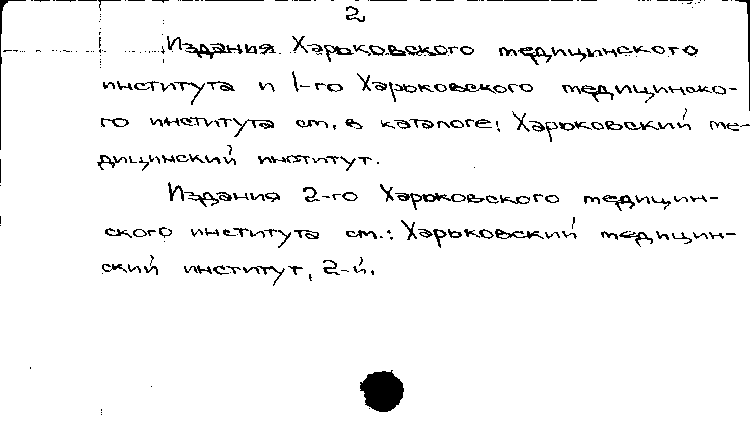 2
Издания Харьковского медицинского
института и 1-го Харьковского медицинско-
го института см. в каталоге: Харьковский ме-
дицинский институт.
Издания 2-го Харьковского медицин-
ского института см.: Харьковский медицин-
ский институт, 2-й.